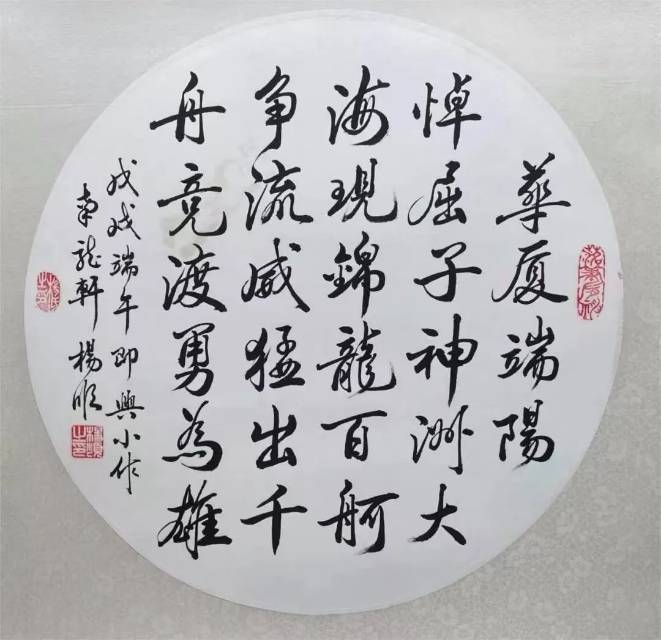 華厦端陽
悼屈子神洲大
海現錦龍百舸
争流威猛出千
舟竞渡勇為雄
戊戌端午即興小作
東龍軒楊順